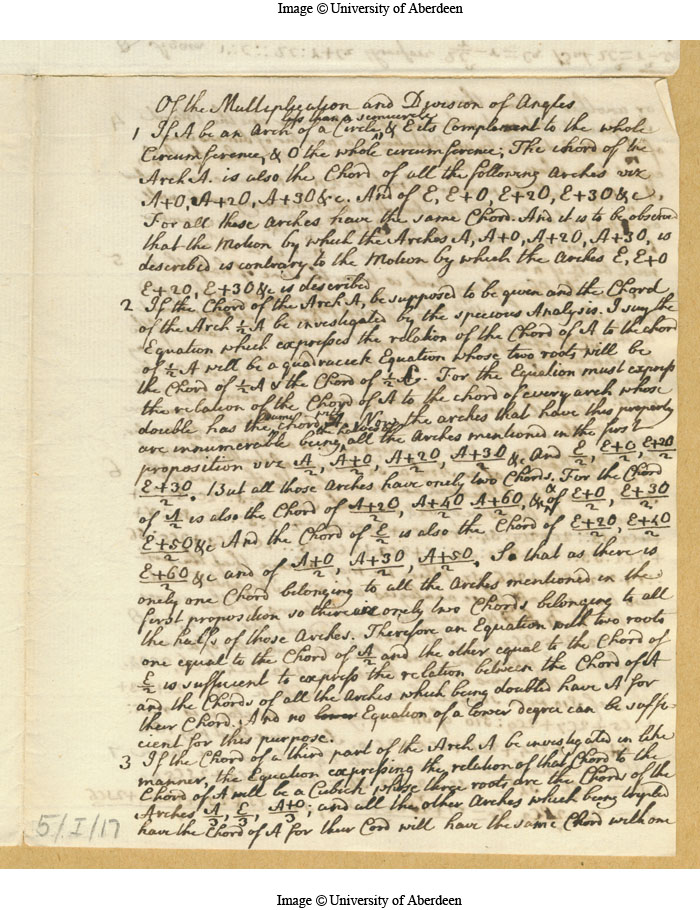 Image © University of Aberdeen
Of the Multiplication and Division of Angles
less than a semicircle
1 If A be an Arch of a Circle, & E its Complement to the whole
Circumference, & O the whole circumference; The chord of the
Arch A. is also the Chord of all the following arches viz
A+O, A+2O, A+3O &c. And of E, E+O, E+2O, E+3O &c,
For all these arches have the same Chord. And it is to be observed
that the Motion by which the Arches A, A+O, A+2O, A+3O, is
described is contrary to the Motion by which the Arches E, E+O
E+2O, E+3O &c is described
2 If the Chord of the Arch A, be supposed to be given and the Chord
of the Arch ½A be investigated by the specious Analysis. I say the
Equation which expresses the relation of the Chord of A to the chord
of ½A will be a quadratick Equation whose two roots will be
the Chord of ½A & the Chord of ½E. For the Equation must express
the relation of the Chord of A to the chord of every arch whose
double has the same chord with A. Now the arches that have this property
are innumerable being the halves of all the Arches mentioned in the first
proposition viz A/2, A+O/2, A+2O/2, A+3O/2 &c And E/2, E+O/2, E+2O/2
E+3O/2. But all those Arches have onely two Chords. For the Chord
of A/2 is also the Chord of A+2O/2, A+4O/2 A+6O/2, &c & of E+O/2, E+3O/2
E+5O/2 &c And the Chord of E/2 is also the Chord of E+2O/2, E+4O/2
E+6O/2 &c and of A+O/2, A+3O/2, A+5O/2. So that as there is
onely one Chord belonging to all the Arches mentioned in the
first proposition so there is onely two Chords belonging to all
the halfs of those Arches. Therefore an Equation with two roots
one equal to the Chord of A/2 and the other equal to the Chord of
E/2 is sufficient to express the relation between the Chord of A
and the Chords of all the Arches which being doubled have A for
their Chord. And no lower Equation of a lower degree can be suffi-
cient for this purpose.
3 If the Chord of a third part of the Arch A be investigated in like
manner, the Equation expressing the relation of that Chord to the
Chord of A will be a Cubick whose three roots are the Chords of the
Arches A/3, E/3, A+O/3; and all the other Arches which being tripled
have the Chord of A for their Cord will have the same Chord with one
5/I/17
Image © University of Aberdeen